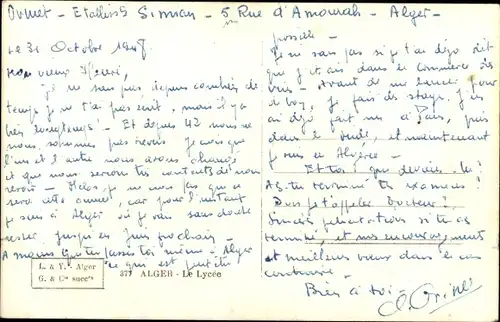 Ormet - Etablints Simian - 5 Rue d'Amourah - Alger -
Le 31 Octobre 1948
Mon vieux Henri,
Je ne sais pas depuis combien de
temps je ne t'ai pas écrit, mais il y a
très longtemps! - Et depuis 42 nous ne
nous sommes pas revus. Je crois que
l'un et l'autre nous avons changé
et que nous serions très contents de nous
revoir - Hélas je ne crois pas que ce
sera cette année, car pour l'instant
je suis à Alger où je vais sans doute
rester jusqu'en juin prochain -
A moins que tu passes toi même à Alger
ce que est peut être
possible -
Je ne sais pas si je t'ai déjà dit
que j'étais dans le commerce des
vins - Avant de me lancer pour
de bon, je fais des stages. J'en
ai déjà fait un à Paris, puis
dans le , et maintenant
je suis en Algérie -
Et toi, que deviens tu?
As-tu terminé tes examens?
Dois je t'appeler Docteur?
Sincères félicitations si tu as
terminé, et mes encouragements
et meilleurs vœux dans le cas
contraire -
Bien à toi -
L. & Y. - Alger
G. & Cie succrs
377 ALGER - Le Lycée